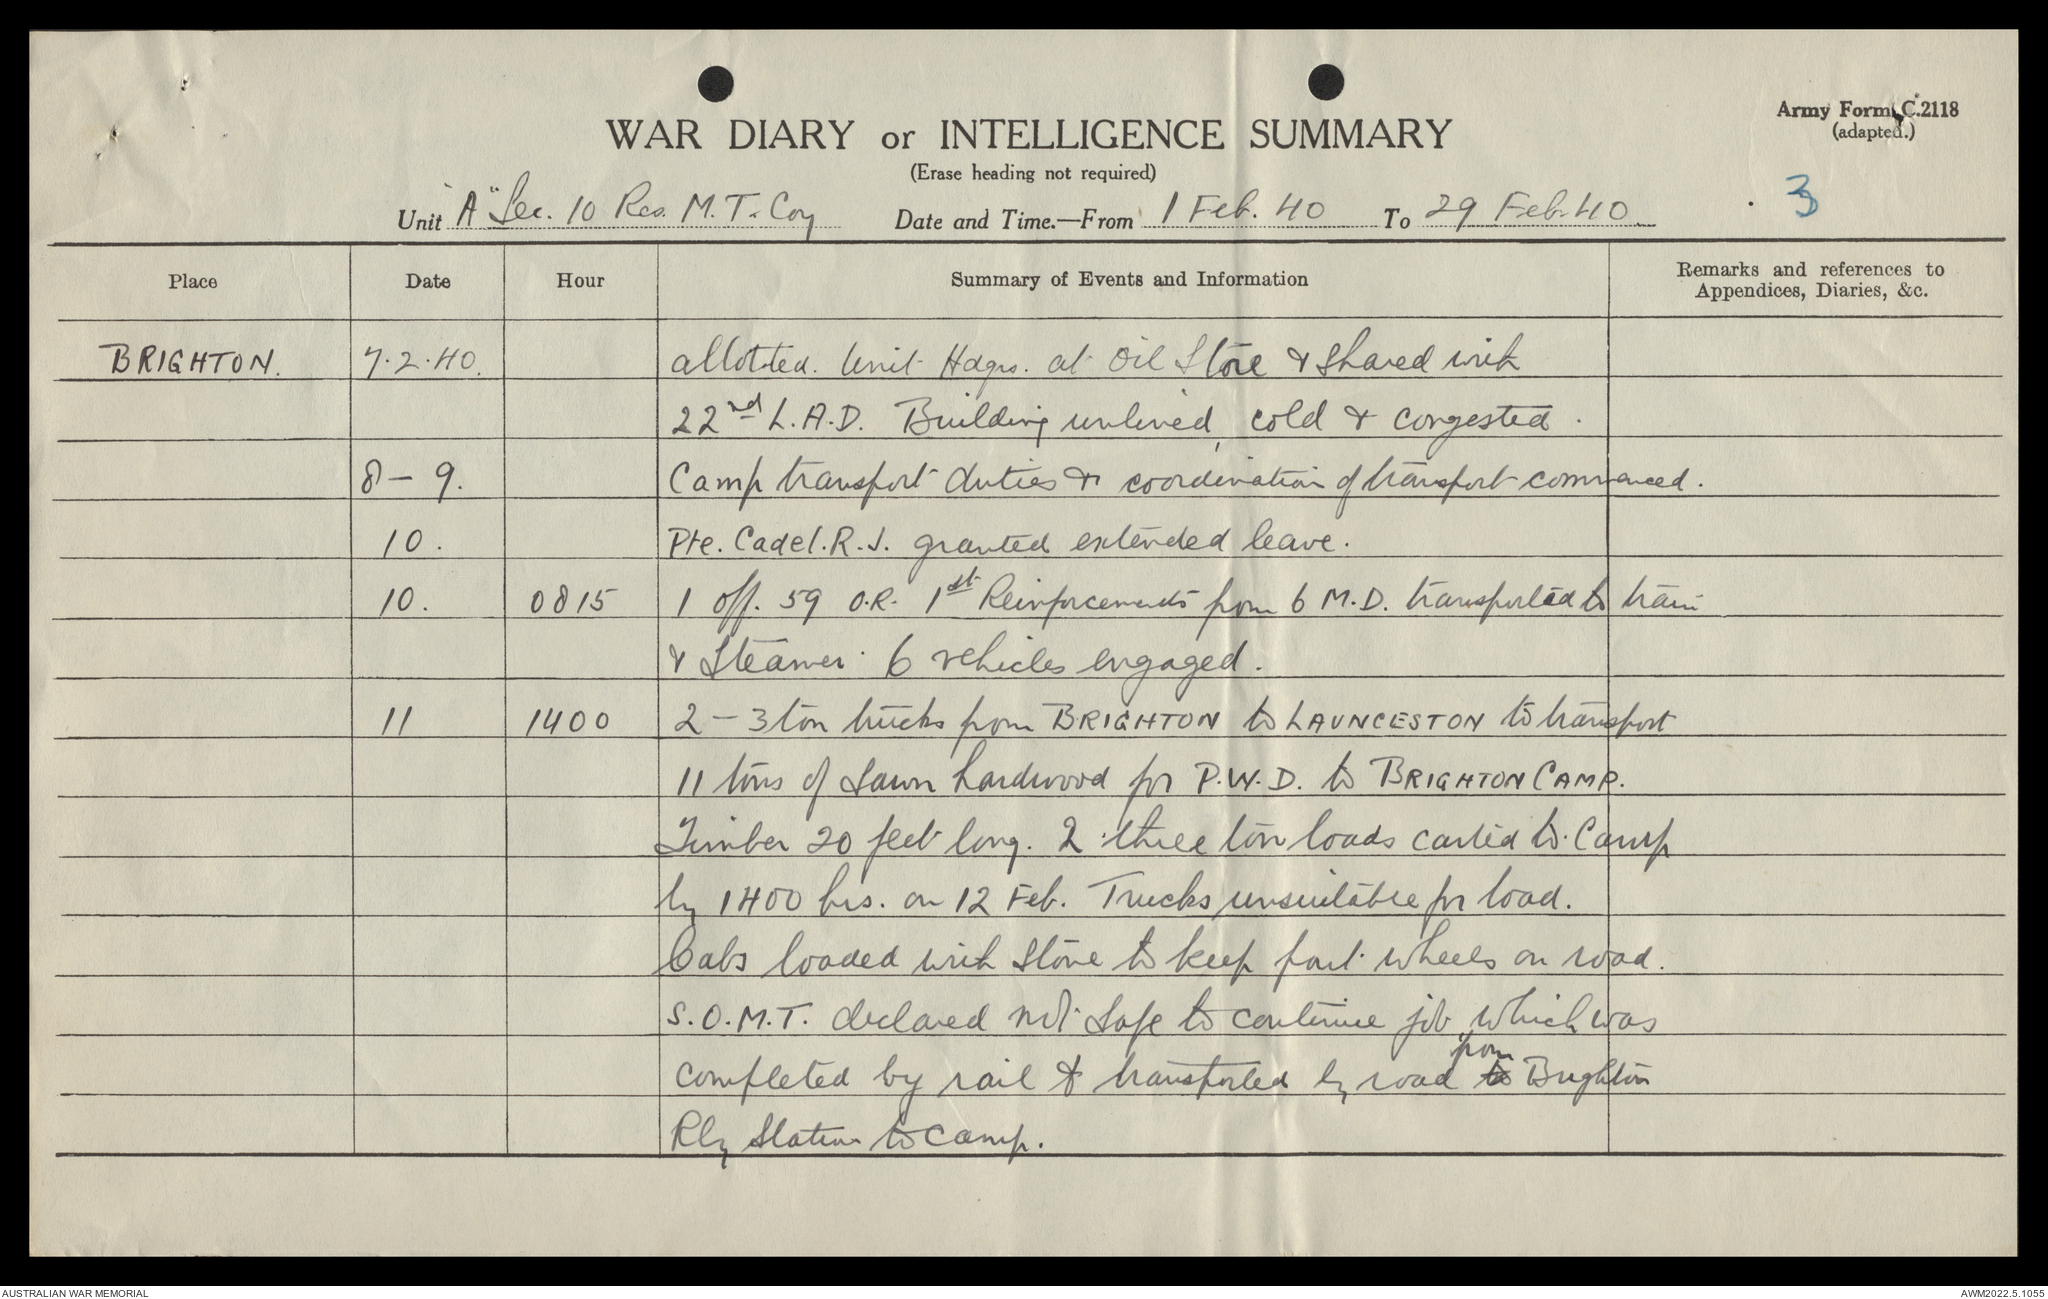 Army Form C.2118
(adapted.)
WAR DIARY or INTELLIGENCE SUMMARY
(Erase heading not required)
Unit "A" Sec. 10 Res. M.T. Coy Date and Time.—From 1 Feb. 40 To 29 Feb. 40
3
Place Date Hour Summary of Events and Information Remarks and references to
Appendices, Diaries, &c.
BRIGHTON. 7.2.40. allotted. Unit Hdqrs. at Oil Store & shared with
22nd L.A.D. Building unlined, cold & congested.
8 - 9. Camp transport duties & coordination of transport commenced.
10. Pte. Cadel. R.J. granted extended leave.
10. 0815 1 off. 59 O.R. 1st Reinforcements from 6 M.D. transported to train
& Steamer. 6 vehicles engaged.
11 1400 2 - 3 ton trucks from BRIGHTON to LAUNCESTON to transport
11 tons of sawn hardwood for P.W.D. to BRIGHTON CAMP.
Timber 20 feet long. 2 three ton loads carted to Camp
by 1400 hrs. on 12 Feb. Trucks unsuitable for load.
Cabs loaded with stone to keep front wheels on road.
S.O.M.T. declared not safe to continue job which was
completed by rail & transported by road from to Brighton
Rly Station to camp.
AUSTRALIAN WAR MEMORIAL AWM2022.5.1055